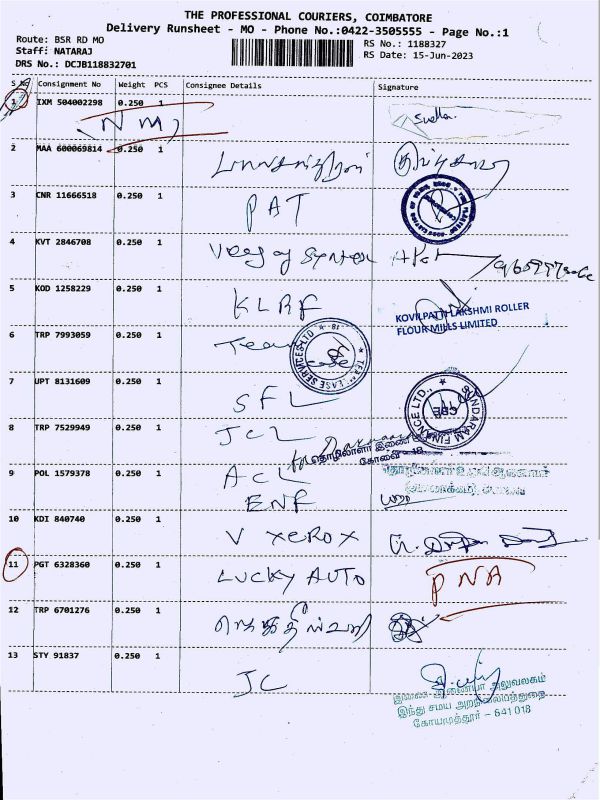 THE PROFESSIONAL COURIERS, COIMBATORE
Delivery Runsheet - MO - Phone No.:0422-3505555 - Page No.:1
Route: BSR RD MO
RS No.: 1188327
Staff: NATARAJ
RS Date: 15-Jun-2023
DRS No.: DCJB118832701
S No Consignment No Weight PCS Consignee Details Signature
1 IXM 504002298 0.250 1
NM
2 MAA 600069814 0.250 1
3 CNR 11666518 0.250 1 PAT
4 KVT 2846708 0.250 1
5 KOD 1258229 0.250 1 KLRF
KOVILPATTI LAKSHMI ROLLER
FLOUR MILLS LIMITED
6 TRP 7993059 0.250 1 Team
TEAM LEASE SERVICES LTD
18
7 UPT 8131609 0.250 1 SFL
SUNDARAM FINANCE LTD.,
CBE
8 TRP 7529949 0.250 1 JCL
கோவை - 18
9 POL 1579378 0.250 1 ACL
ENF
10 KDI 840740 0.250 1 V XEROX
11 PGT 6328360 0.250 1 LUCKY AUTO PNA
12 TRP 6701276 0.250 1
13 STY 91837 0.250 1 JC
இணை ஆணையர் அலுவலகம்
இந்து சமய அறநிலையத்துறை
கோயமுத்தூர் - 641 018